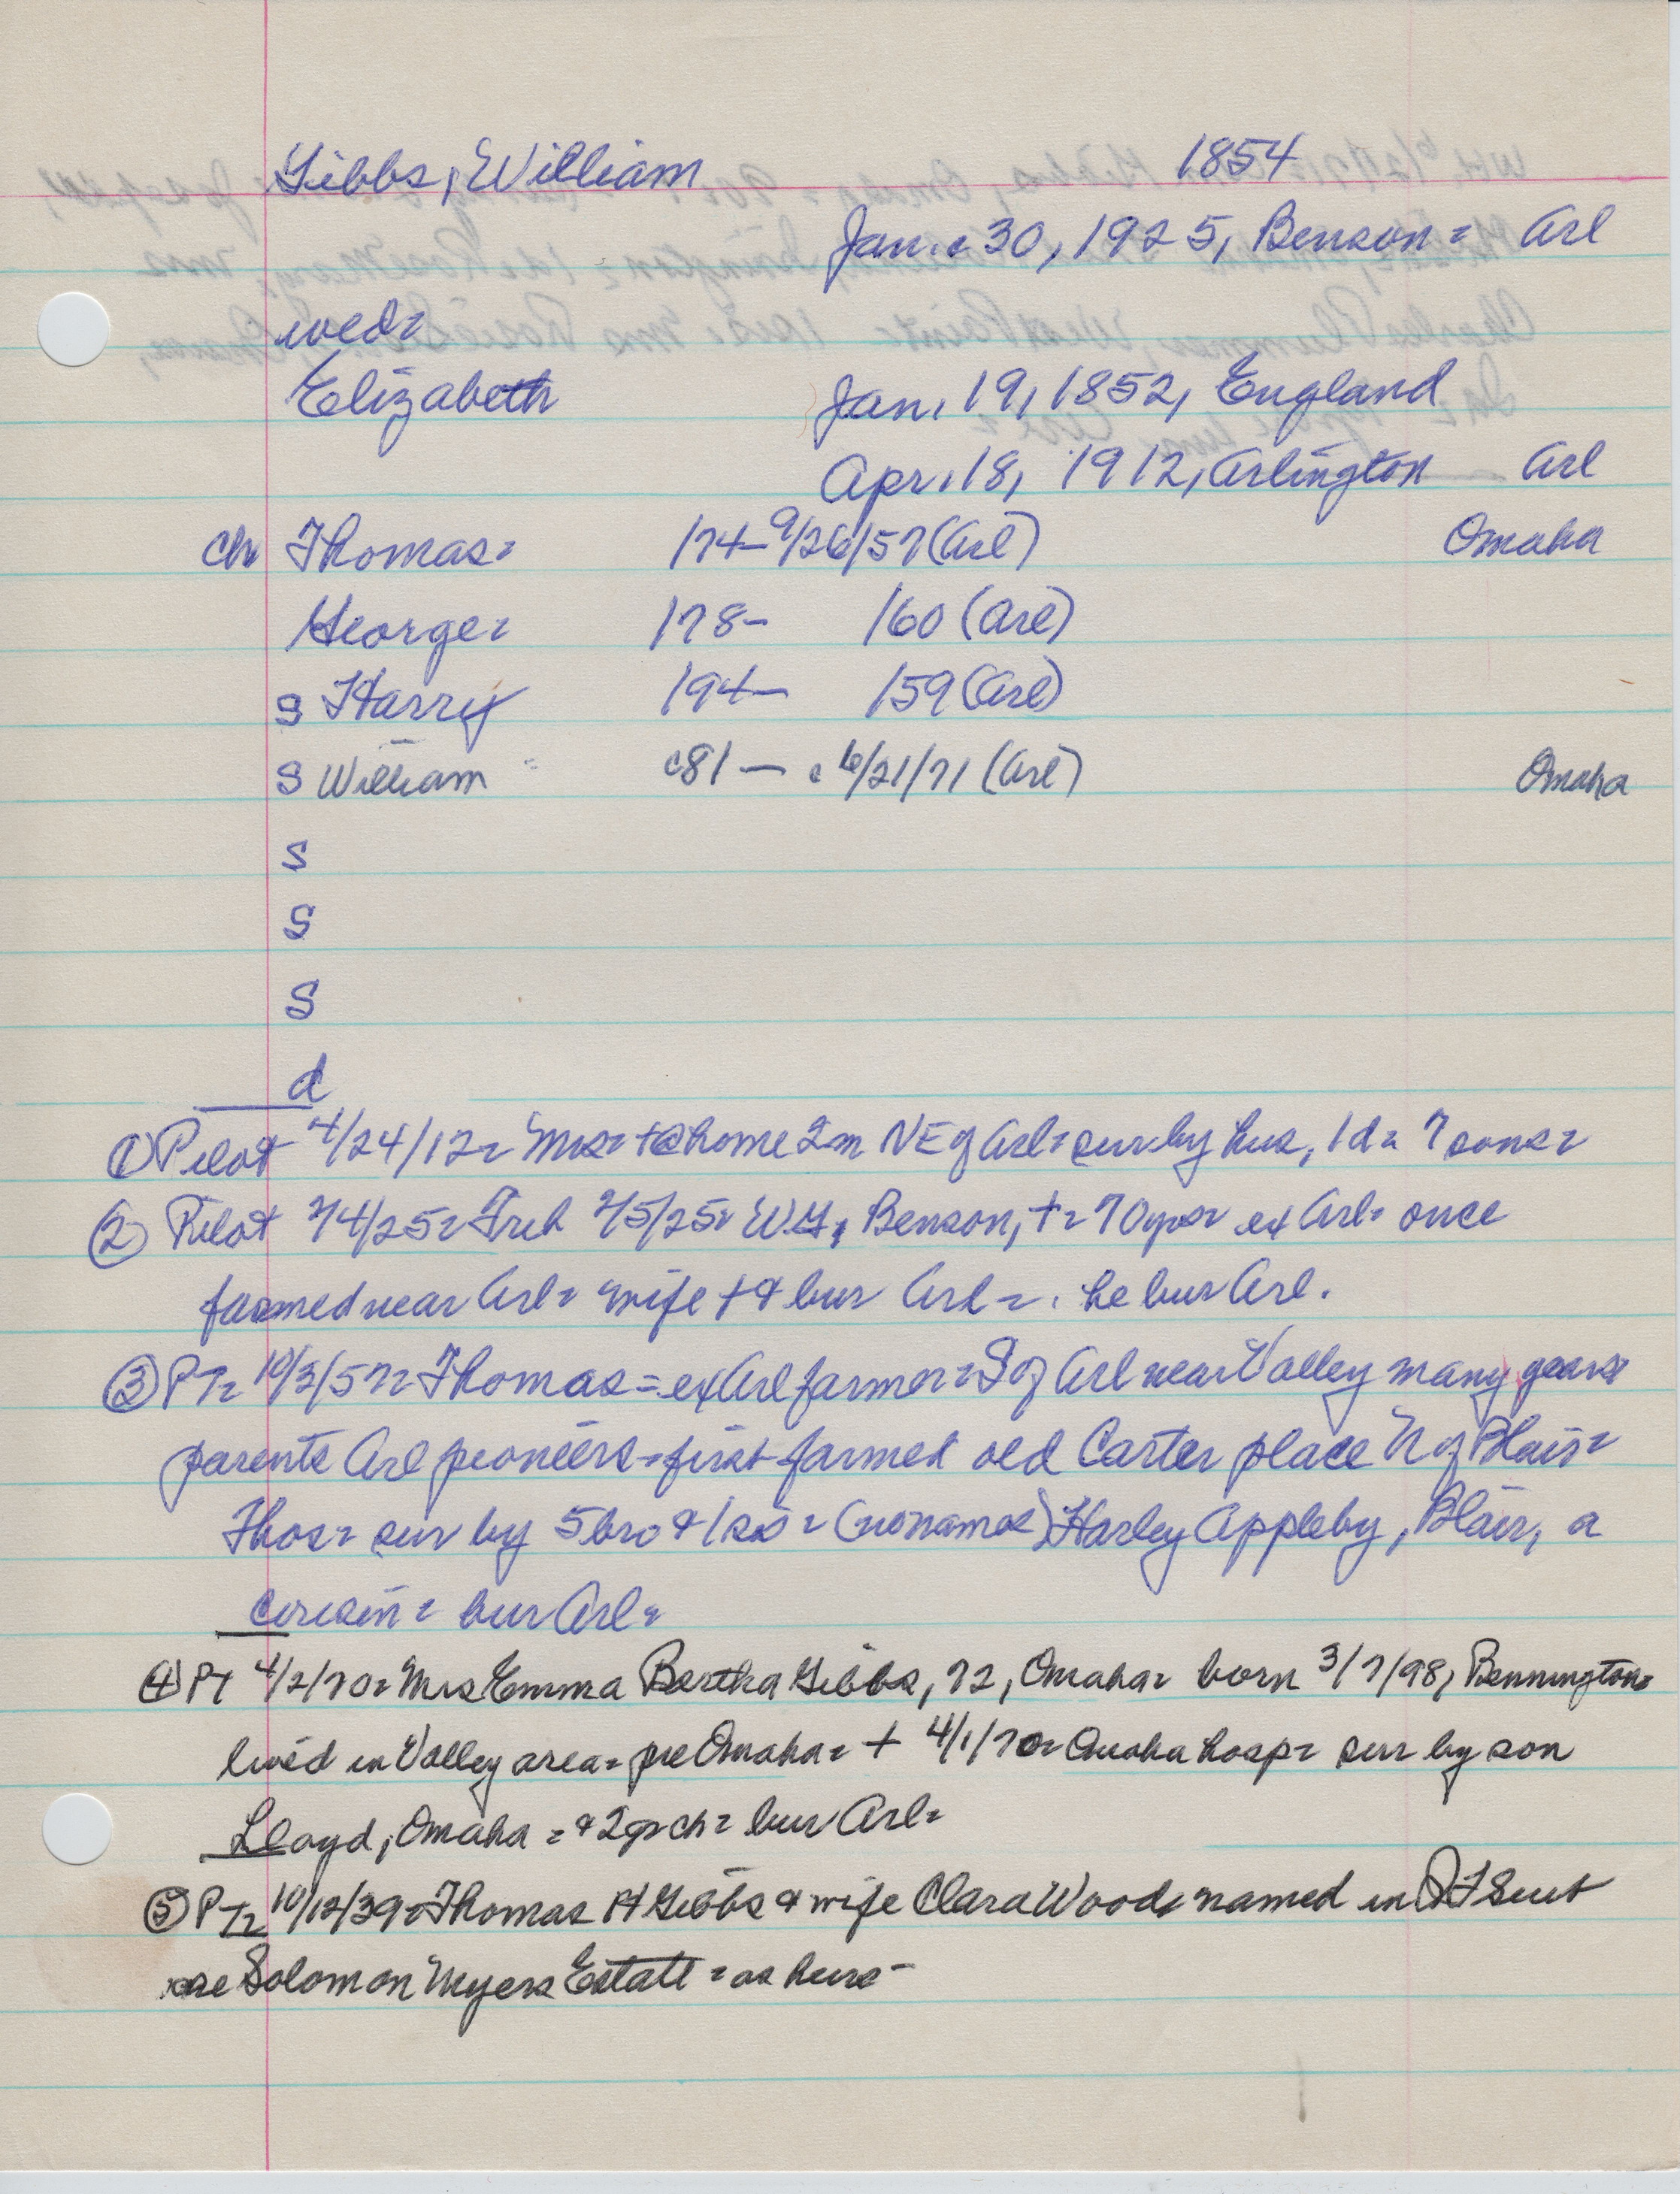 Gibbs, William 1854
Jan. c 30, 1925, Benson = Arl
wed=
Elizabeth Jan. 19, 1852, England
Apr. 18, 1912, Arlington Arl
ch Thomas= 174- 9/26/57 (Arl) Omaha
George= 178- 160 (Arl)
s Harry 194- 159 (Arl)
s William = c81 - c 6/21/71 (Arl) Omaha
s
s
s
d
① Pilot 4/24/12= Mrs= + @ home 2m NE of Arl= sur by hus, 1d= 7 sons=
② Pilot 2/4/25= Trib 2/5/25= W.G., Benson, += 70 yrs= ex Arl= once
farmed near Arl= wife + & bur Arl =. he bur Arl.
③ PT= 10/3/57= Thomas = ex Arl farmer= S of Arl near Valley many years
parents Arl pioneers=first farmed old Carter place N of Blair=
Thos= sur by 5 bro & 1 sis = (no names) Harley Appleby, Blair, a
cousin= bur Arl=
④ PT 4/2/70= Mrs Emma Bertha Gibbs, 72, Omaha= born 3/7/98, Bennington=
lived in Valley area= pre Omaha= + 4/1/70= Omaha hosp= sur by son
Lloyd, Omaha = & 2 gr ch= bur Arl=
⑤ PT= 10/12/39= Thomas H Gibbs & wife Clara Wood= named in QT Suit
re Solomon Myers Estate = as heirs-